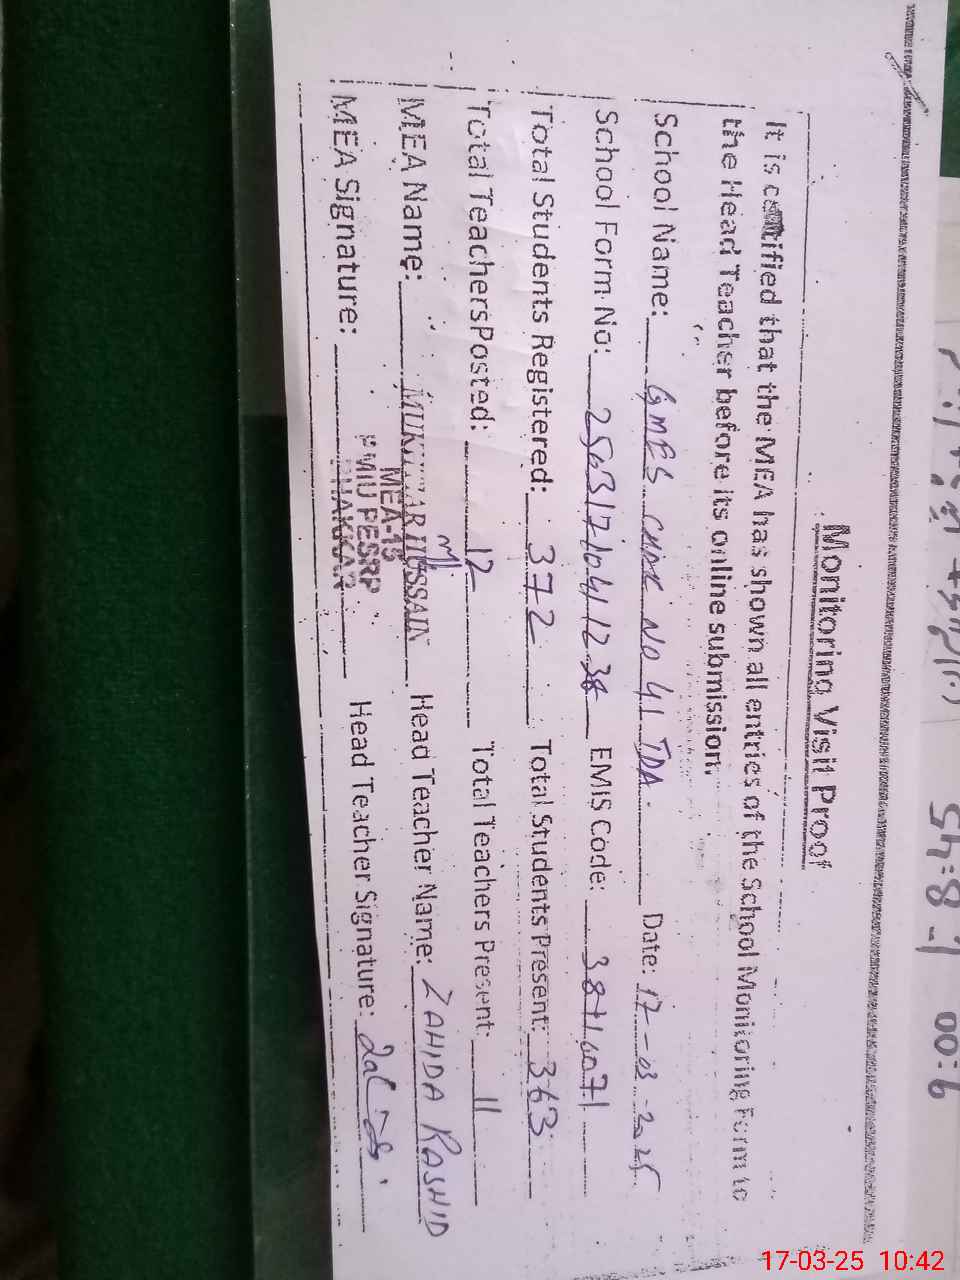 Monitoring Visit Proof
It is certified that the MEA has shown all entries of the School Monitoring Form to
the Head Teacher before its online submission.
School Name: GMES CHAK No 41 TDA Date: 17-03-2025
School Form No: EMIS Code:
Total Students Registered: 372 Total Students Present: 363
Total Teachers Posted: 12 Total Teachers Present: 11
MEA Name: MUKHTAR HUSSAIN Head Teacher Name: ZAHIDA RASHID
MEA-15
PMIU PESRP
BHAKKAR
MEA Signature: Head Teacher Signature:
8:45
9:00
17-03-25 10:42